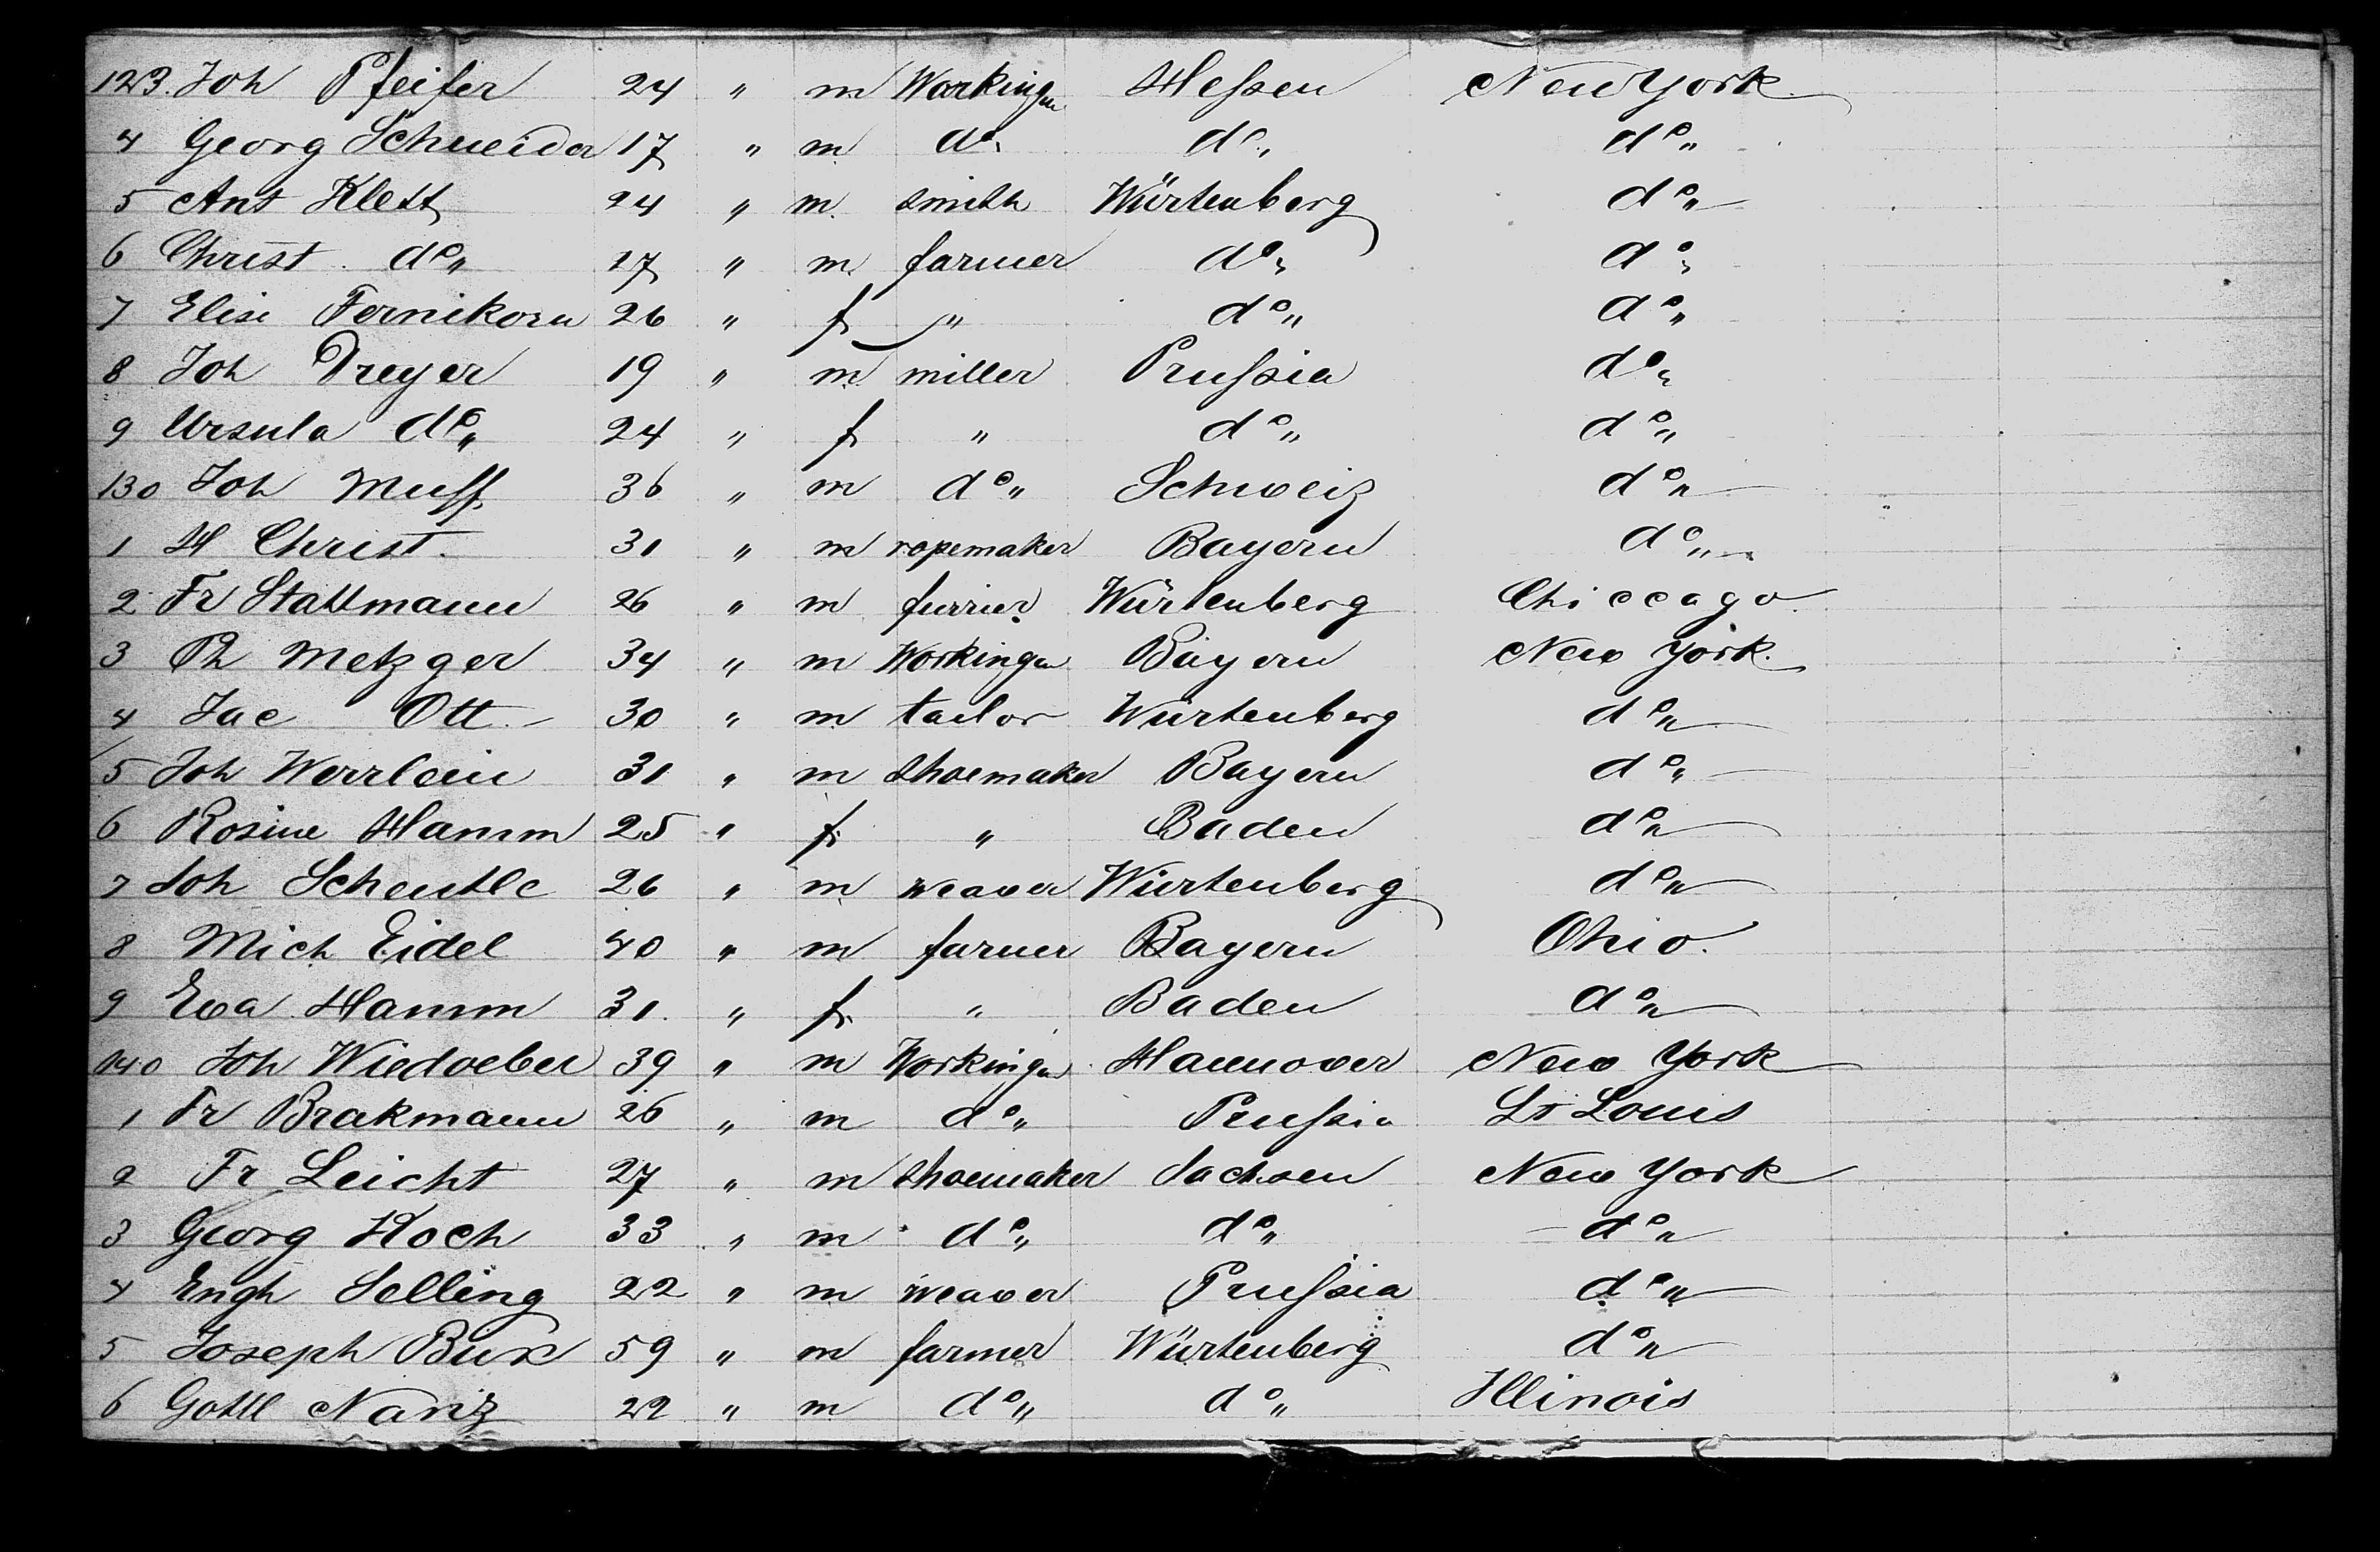 123. Joh Pfeifer 24 " m Workingm Hessen New York
4 Georg Schneider 17 " m do " do " do "
5 Ant Klett 24 " m smith Würtenberg do "
6 Christ do " 17 " m farmer do " do "
7 Elise Fernikorn 26 " f " do " do "
8 Joh Dreyer 19 " m miller Prussia do "
9 Ursula do " 24 " f " do " do "
130 Joh Muff 36 " m do " Schweiz do "
1 H Christ. 31 " m ropemaker Bayern do "
2 Fr Stattmann 26 " m furrier Würtenberg Chiccago.
3 Ph Metzger 34 " m Workingm Bayern New York.
4 Jac Ott 30 " m tailor Würtenberg do "
5 Joh Werrlein 31 " m shoemaker Bayern do "
6 Rosine Hamm 25 " f " Baden do "
7 Joh Scheutle 26 " m weaver Würtenberg do "
8 Mich Eidel 40 " m farmer Bayern Ohio.
9 Eva Hamm 31. " f " Baden do "
140 Joh 39 " m Workingm Hannover New York
1 Fr Brakmann 26 " m do " Prussia St Louis
2 Fr Leicht 27 " m shoemaker Sachsen New York
3 Georg Koch 33 " m do " do " do "
4 Engh Selling 22 " m weaver Prussia do "
5 Joseph Bux 59 " m farmer Würtenberg do "
6 Gottl Nanz 22 " m do " do " Illinois